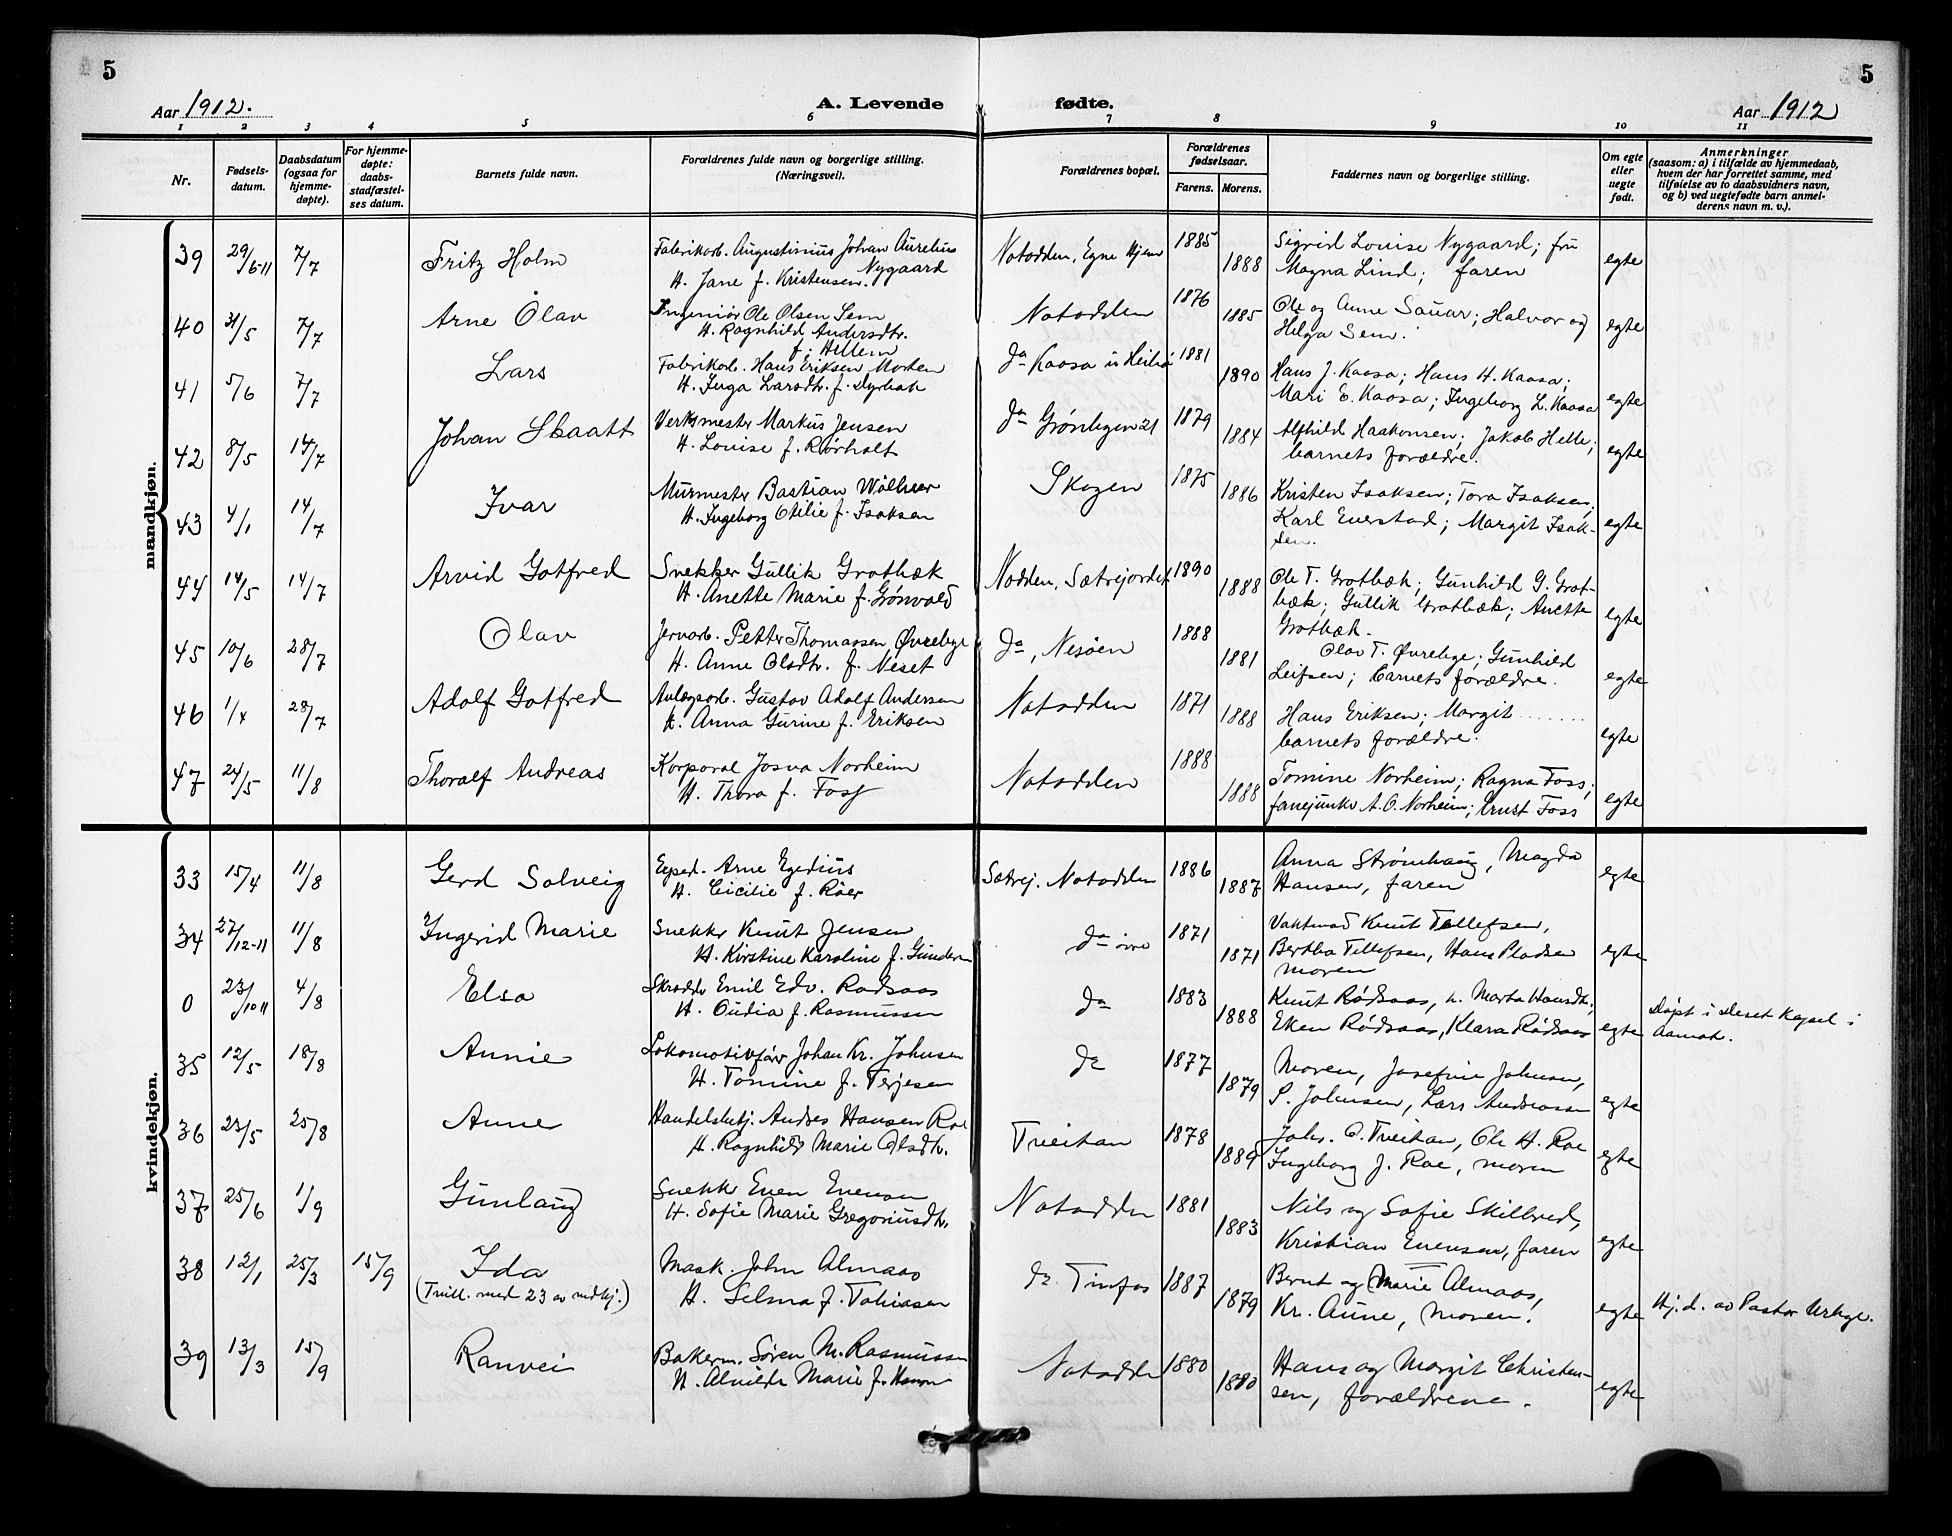 5
5
Aar 1912.
A. Levende
fødte.
Aar 1912
1 2 3 4 5 6 7 8 9 10 11
Nr.
Fødsels-
datum.
Daabsdatum
(ogsaa for
hjemme-
døpte).
For hjemme-
døpte:
daabs-
stadfæstel-
ses datum.
Barnets fulde navn.
Forældrenes fulde navn og borgerlige stilling.
(Næringsvei).
Forældrenes bopæl.
Forældrenes
fødselsaar.
Farens. Morens.
Faddernes navn og borgerlige stilling.
Om egte
eller
uegte
født.
Anmerkninger
(saasom: a) i tilfælde av hjemmedaab,
hvem der har forrettet samme, med
tilføielse av to daabsvidners navn,
og b) ved uegtefødte barn anmel-
derens navn m. v.).
mandkjøn.
39 29/6-11 7/7 Fritz Holm Fabrikarb. Augustinius Johan Aurelius Nygaard
H. Jane f. Kristensen. Notodden, Egne Hjem 1885 1888 Sigrid Louise Nygaard; fru
Magna Lind; faren egte
40 31/5 7/7 Arne Olav Ingeniør Ole Olsen Sem
H. Ragnhild Andersdtr.
f. Hellem Notodden 1876 1885 Ole og Anne Sauar; Halvor og
Helga Sem. egte
41 5/6 7/7 Lars Fabrikarb. Hans Eriksen Morken
H. Inga Larsdtr. f. Dyrbak da Kaasa i Heibø 1881 1890 Hans J. Kaasa; Hans H. Kaasa;
Mari E. Kaasa; Ingeborg L. Kaasa egte
42 8/5 14/7 Johan Skaatt Verksmester Markus Jensen
H. Louise f. Rørholt da Grønbyen 21 1879 1884 Alfhild Haakonsen; Jakob Helle;
barnets forældre. egte
43 4/1 14/7 Ivar Murmester Bastian
H. Ingeborg Otilie f. Isaksen Skogen 1875 1886 Kristen Isaksen; Tora Isaksen;
Karl Everstad; Margit Isak-
sen. egte
44 14/5 14/7 Arvid Gotfred Snekker Gullik Grotbæk
H. Anette Marie f. Grønvold Nodden, Sætrejordet 1890 1888 Ole T. Grotbæk; Gunhild G. Grot-
bæk; Gullik Grotbæk; Anette
Grotbæk. egte
45 10/6 28/7 Olav Jernarb. Petter Thomassen Øvrebye
H. Anne Olsdtr. f. Neset da, Nesøen 1888 1881 Olav T. Øvrebye; Gunhild
Leifsen; barnets forældre. egte
46 1/4 28/7 Adolf Gotfred Anlægsarb. Gustav Adolf Andersen
H. Anna Gurine f. Eriksen Notodden 1871 1888 Hans Eriksen; Margit .......
barnets forældre. egte
47 24/5 11/8 Thoralf Andreas Korporal Josva Norheim
H. Thora f. Foss Notodden 1888 1888 Tomine Norheim; Ragna Foss;
fanejunker A. O. Norheim; Ernst Foss egte
kvindekjøn.
33 15/4 11/8 Gerd Solveig Exped. Arne Egedius
H. Cicilie f. Röer Sætrej. Notodden 1886 1887 Anna Strømhaug, Magda
Hansen, faren egte
34 27/12-11 11/8 Ingerid Marie Snekker Knut Jensen
H. Kirstine Karoline f. Gundersn da 1871 1871 Vaktmd Knut Tellefsen,
Bertha Tellefsen, Hans Pladsen
moren egte
0 23/10 11 4/8 Elsa Skrædder Emil Edv. Rødsaas
H. Oudia f. Rasmussen da 1883 1888 Knut Rødsaas, h. Marta Hansdtr,
Eken Rødsaas, Klara Rødsaas egte Døpt i Deset kapel i
Aamot.
35 12/5 18/8 Annie Lokomotivfør Johan Kr. Johnsen
H. Tomine f. Terjesen da 1877 1879 Moren, Josefine Johnsen,
S. Johnsen, Lars Andreassen egte
36 23/5 25/8 Anne Handelsbetj. Andres Hansen Roe
H. Ragnhild Marie Olsdtr. Tveitan 1878 1889 Johs. O. Tveitan, Ole H. Roe
Ingeborg J. Roe, moren egte
37 25/6 1/9 Gunlaug Snekk Even Evensen
H. Sofie Marie Gregoriusdtr. Notodden 1881 1883 Nils og Sofie Skilbred,
Kristian Evensen, faren egte
38 12/1 25/3 15/9 Ida
(Tvill. med 23 av mdkj.) Mask. John Almaas
H. Selma f. Tobiasen da Tinfos 1887 1879 Bernt og Marie Almaas,
Kr. Aune, moren. egte Hj. d. av Pastor Urbye.
39 13/3 15/9 Ranvei Bakerm. Søren M. Rasmussen
H. Alvilde Marie f. Hansen Notodden 1880 1880 Hans og Margit Christen-
sen, forældrene. egte